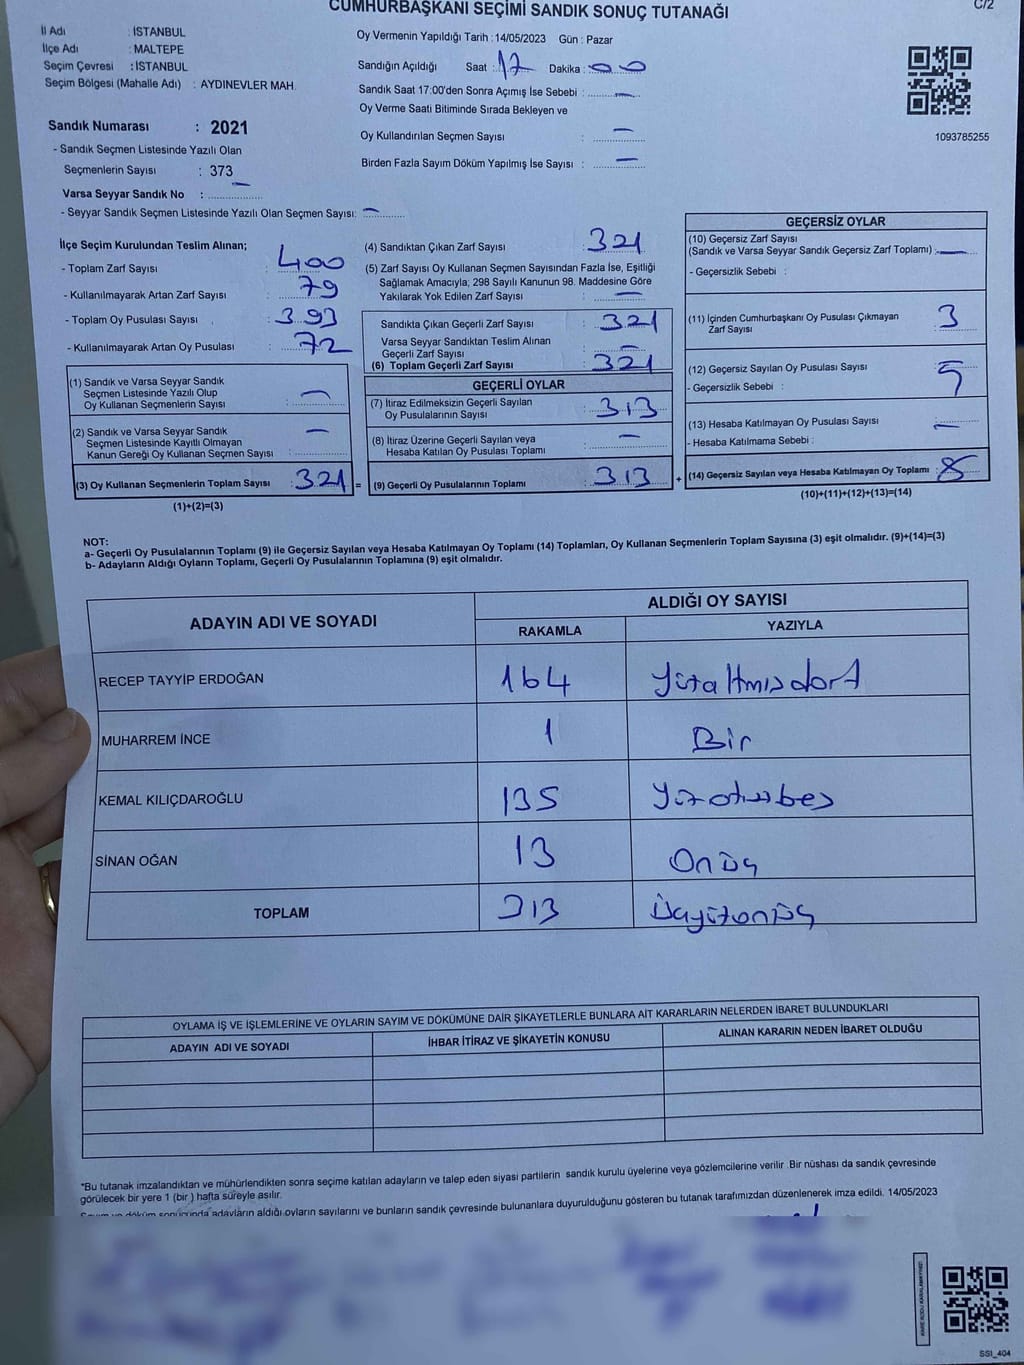 CUMHURBAŞKANI SEÇİMİ SANDIK SONUÇ TUTANAĞI
C/2
İl Adı : İSTANBUL
İlçe Adı : MALTEPE
Seçim Çevresi : İSTANBUL
Seçim Bölgesi (Mahalle Adı) : AYDINEVLER MAH.
Sandık Numarası : 2021
- Sandık Seçmen Listesinde Yazılı Olan
Seçmenlerin Sayısı : 373
Varsa Seyyar Sandık No : —
- Seyyar Sandık Seçmen Listesinde Yazılı Olan Seçmen Sayısı: —
Oy Vermenin Yapıldığı Tarih : 14/05/2023 Gün : Pazar
Sandığın Açıldığı Saat : 17 Dakika : 00
Sandık Saat 17:00'den Sonra Açımış İse Sebebi : —
Oy Verme Saati Bitiminde Sırada Bekleyen ve
Oy Kullandırılan Seçmen Sayısı : —
Birden Fazla Sayım Döküm Yapılmış İse Sayısı : —
1093785255
İlçe Seçim Kurulundan Teslim Alınan;
- Toplam Zarf Sayısı : 400
- Kullanılmayarak Artan Zarf Sayısı : 79
- Toplam Oy Pusulası Sayısı : 393
- Kullanılmayarak Artan Oy Pusulası : 72
(1) Sandık ve Varsa Seyyar Sandık
Seçmen Listesinde Yazılı Olup
Oy Kullanan Seçmenlerin Sayısı : —
(2) Sandık ve Varsa Seyyar Sandık
Seçmen Listesinde Kayıtlı Olmayan
Kanun Gereği Oy Kullanan Seçmen Sayısı : —
(3) Oy Kullanan Seçmenlerin Toplam Sayısı : 321 =
(1)+(2)=(3)
(4) Sandıktan Çıkan Zarf Sayısı : 321
(5) Zarf Sayısı Oy Kullanan Seçmen Sayısından Fazla İse, Eşitliği
Sağlamak Amacıyla; 298 Sayılı Kanunun 98. Maddesine Göre
Yakılarak Yok Edilen Zarf Sayısı : —
Sandıkta Çıkan Geçerli Zarf Sayısı : 321
Varsa Seyyar Sandıktan Teslim Alınan
Geçerli Zarf Sayısı : —
(6) Toplam Geçerli Zarf Sayısı : 321
GEÇERLİ OYLAR
(7) İtiraz Edilmeksizin Geçerli Sayılan
Oy Pusulalarının Sayısı : 313
(8) İtiraz Üzerine Geçerli Sayılan veya
Hesaba Katılan Oy Pusulası Toplamı : —
(9) Geçerli Oy Pusulalarının Toplamı : 313 +
GEÇERSİZ OYLAR
(10) Geçersiz Zarf Sayısı
(Sandık ve Varsa Seyyar Sandık Geçersiz Zarf Toplamı) : —
- Geçersizlik Sebebi :
(11) İçinden Cumhurbaşkanı Oy Pusulası Çıkmayan
Zarf Sayısı : 3
(12) Geçersiz Sayılan Oy Pusulası Sayısı : 5
- Geçersizlik Sebebi :
(13) Hesaba Katılmayan Oy Pusulası Sayısı : —
- Hesaba Katılmama Sebebi :
(14) Geçersiz Sayılan veya Hesaba Katılmayan Oy Toplamı : 8
(10)+(11)+(12)+(13)=(14)
NOT:
a- Geçerli Oy Pusulalarının Toplamı (9) ile Geçersiz Sayılan veya Hesaba Katılmayan Oy Toplamı (14) Toplamları, Oy Kullanan Seçmenlerin Toplam Sayısına (3) eşit olmalıdır. (9)+(14)=(3)
b- Adayların Aldığı Oyların Toplamı, Geçerli Oy Pusulalarının Toplamına (9) eşit olmalıdır.
ADAYIN ADI VE SOYADI ALDIĞI OY SAYISI
RAKAMLA YAZIYLA
RECEP TAYYİP ERDOĞAN 164 Yüzaltmışdört
MUHARREM İNCE 1 Bir
KEMAL KILIÇDAROĞLU 135 Yüzotuzbeş
SİNAN OĞAN 13 Onüç
TOPLAM 313 Üçyüzonüç
OYLAMA İŞ VE İŞLEMLERİNE VE OYLARIN SAYIM VE DÖKÜMÜNE DAİR ŞİKAYETLERLE BUNLARA AİT KARARLARIN NELERDEN İBARET BULUNDUKLARI
ADAYIN ADI VE SOYADI İHBAR İTİRAZ VE ŞİKAYETİN KONUSU ALINAN KARARIN NEDEN İBARET OLDUĞU
*Bu tutanak imzalandıktan ve mühürlendikten sonra seçime katılan adayların ve talep eden siyasi partilerin sandık kurulu üyelerine veya gözlemcilerine verilir. Bir nüshası da sandık çevresinde
görülecek bir yere 1 (bir) hafta süreyle asılır.
Sayım ve döküm sonucunda adayların aldığı oyların sayılarını ve bunların sandık çevresinde bulunanlara duyurulduğunu gösteren bu tutanak tarafımızdan düzenlenerek imza edildi. 14/05/2023
SSI_404